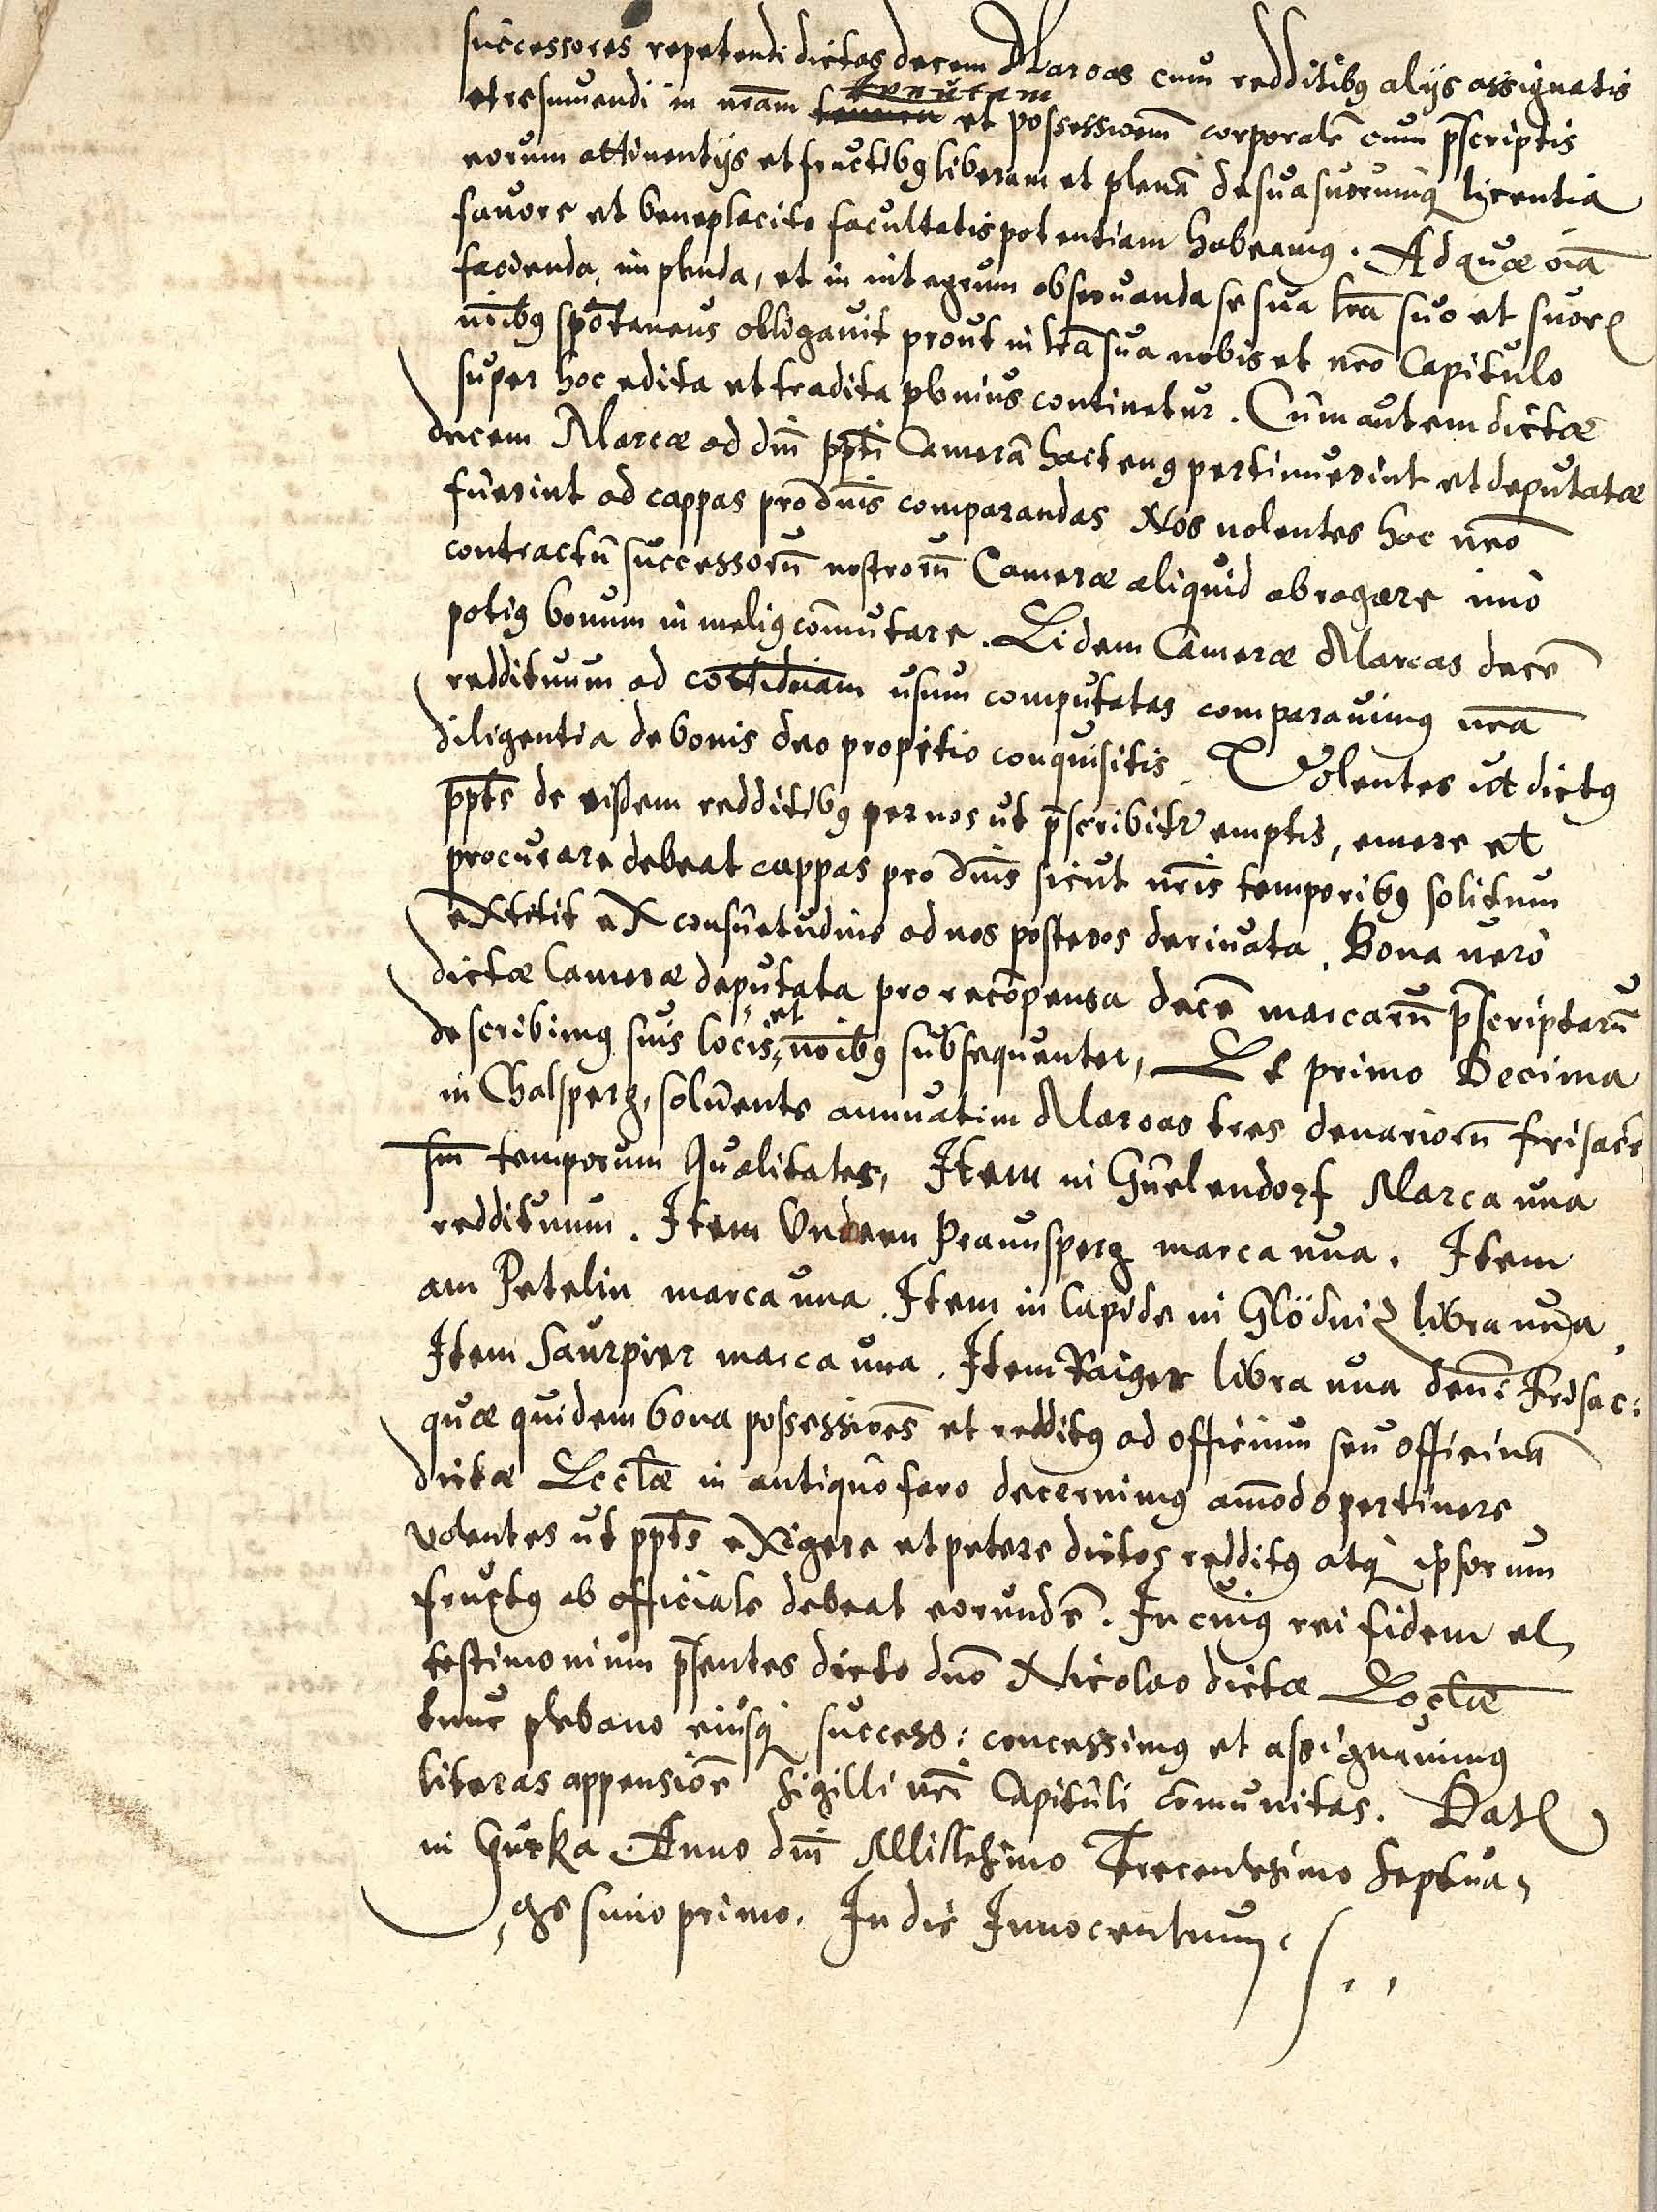 successores repetendi dictas decem Marcas cum redditibus alijs assignatis
et resumendi in nr̄am tenutam et possessionem̄ corporalē cum p̄scriptis
eorum attinentijs et fructibus liberam et plenā de sua suorumq̄ licentia
favore et beneplacito facultatis potentiam habeamus. Ad quæ oīa
facienda, implenda, et in integrum observanda se sua lr̄a suo et suorꝝ
nn̄ibus spōtaneus obligavit prout in lr̄a sua nobis et nr̄o Capitulo
super hoc edita et tradita plenius continetur. Cùm autem dictæ
decem Marcæ ad dnī p̄pti Camerā hactenus pertinuerint et deputatæ
fuerint ad cappas pro dn̄is comparandas Nos nolentes hoc nr̄o
contractū successorū nostrorū Cameræ aliquid abrogare imò
potius bonum in melius com̄utare. Eidem Cameræ Marcas decē
reddituum ad cottidiam̄ usum computatas comparavimus nr̄a
diligentia de bonis deo propitio conquisitis. Volentes ut dictus
p̄pts de eisdem redditibus per nos ut p̄scribitur emptis, emere et
procurare debeat cappas pro dn̄is sicut nr̄is temporibus solitum
extitit ex consuetudine ad nos posteros derivata. Bona verò
dictæ Cameræ deputata pro recōpensa decē marcarū p̄scriptarū
describimus suis locis, et noīibus subsequenter, Et primo Decima
in Chalsperg, solvente annuatim Marcas tres denariorū frisacē,
scdm̄ temporum Qualitates, Item in Gûelendorf Marca una
reddituum. Item Undern Praunsperg marca una. Item
am Petelin marca una. Item in lapide in Glödniz libra una.
Item Saurpier marca una. Item Raiger libra una den̄: Frisac:
quæ quidem bona possessiōes et redditus ad officium seu officinā
dictæ Eccl̄æ in antiquo foro decernimus am̄odo pertinere
volentes ut p̄pts exigere et petere dictos redditus atq̄ ipsorum
fructus ab officiale debeat eorundē. In cuius rei fidem et
testimonium p̄sentes dicto dn̄o Nicolao dictæ Eccl̄æ
tunc plebano eiusq̄ success: concessimus et assignavimus
literas appensiōe sigilli nr̄i Capituli com̄unitas. Datꝝ
in Gurka Anno dn̄i Millesimo Trecentesimo Septua-
gesimo primo. In die Innocentium.